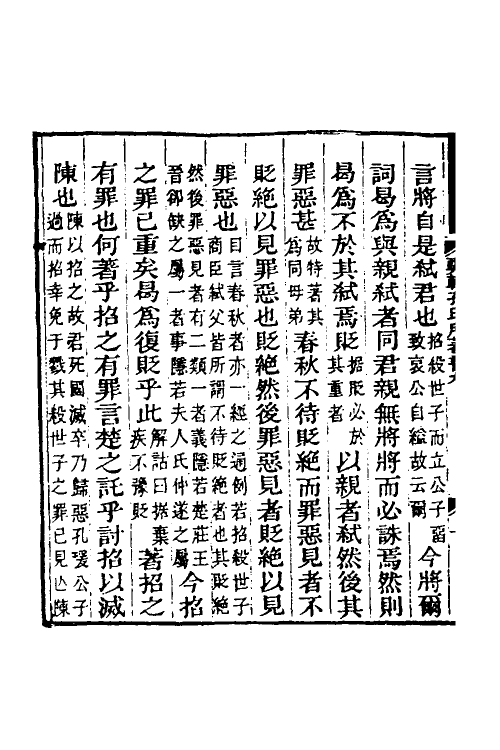 言將自是弒君也招殺世子而立公子畱致哀公自縊故云爾今將爾
詞曷為與親弒者同君親無將將而必誅焉然則
曷為不於其弒焉貶據貶必於其重者以親者弒然後其
罪惡甚故特著其為同母弟春秋不待貶絕而罪惡見者不
貶絕以見罪惡也貶絕然後罪惡見者貶絕以見
罪惡也目言春秋者亦一經之通例若招殺世子商臣弒父皆所謂不待貶絕者也其貶絕
然後罪惡見者有二類一者義隱若楚莊王晉郤缺之屬一者事隱若夫人氏仲遂之屬今招
之罪已重矣曷為復貶乎此解詁曰據棄疾不豫貶著招之
有罪也何著乎招之有罪言楚之託乎討招以滅
陳也陳以招之故君死國滅卒乃歸惡孔瑗公子過而招幸免于戮其殺世子之罪已見亾陳